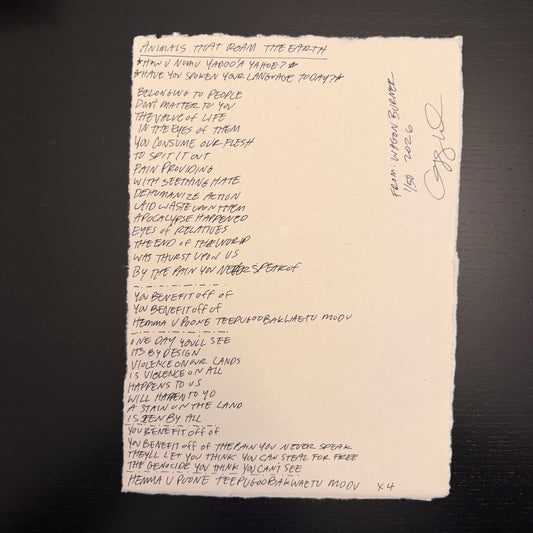 ANIMALS THAT ROAM THE EARTH
*HOW U NUMU YADOO'A YAHOE?*
*HAVE YOU SPOKEN YOUR LANGUAGE TODAY?*
BELONGING TO PEOPLE
DONT MATTER TO YOU
THE VALUE OF LIFE
IN THE EYES OF THEM
YOU CONSUME OUR FLESH
TO SPIT IT OUT
PAIN PROVIDING
WITH SEETHING HATE
DEHUMANIZE ACTION
LAID WASTE UPON THEM
APOCALYPSE HAPPENED
EYES OF RELATIVES
THE END OF THE WORLD
WAS THURST UPON US
BY THE PAIN YOU NEVER SPEAK OF
YOU BENEFIT OFF OF
YOU BENEFIT OFF OF
HEMMA U PUONE TEEPUGOOBAKWAETU MODU
ONE DAY YOU'LL SEE
ITS BY DESIGN
VIOLENCE ON OUR LANDS
IS VIOLENCE ON ALL
HAPPENS TO US
WILL HAPPEN TO YO
A STAIN ON THE LAND
IS SEEN BY ALL
YOU BENEFIT OFF OF
YOU BENEFIT OFF OF THE PAIN YOU NEVER SPEAK
THEYLL LET YOU THINK YOU CAN STEAL FOR FREE
THE GENOCIDE YOU THINK YOU CAN'T SEE
HEMMA U PUONE TEEPUGOOBAKWAETU MODU X4
FROM: WAGON BURNER
1/50 2026